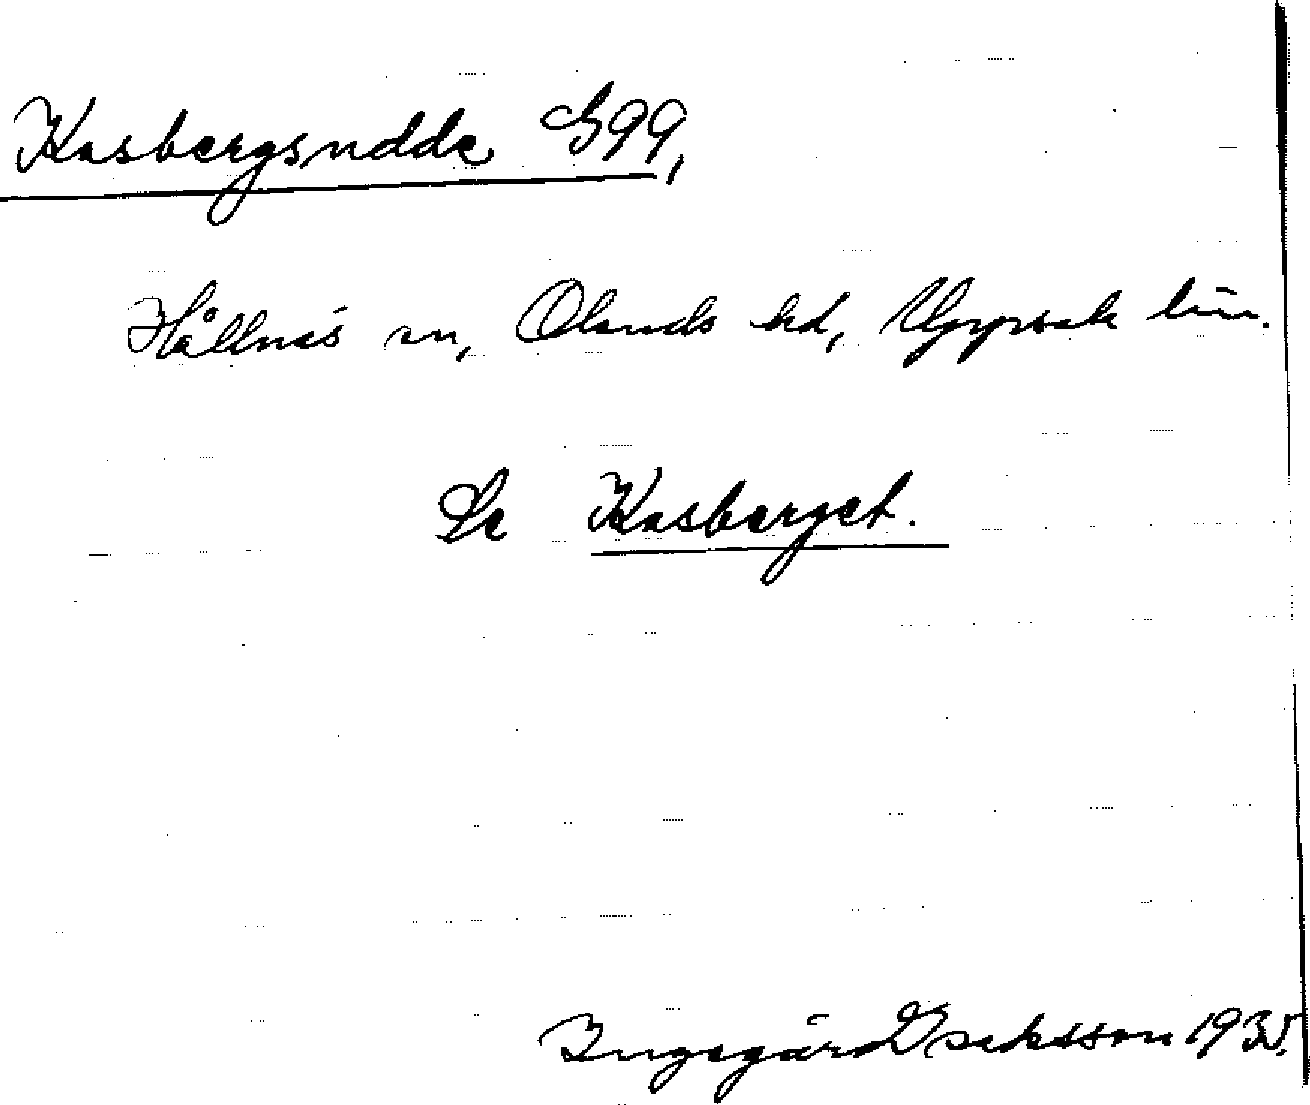 Kasbergsudde G99,
Hållnäs sn, Olands hd, Uppsala län.
Se Kasberget.
Ingegärd Eriksson